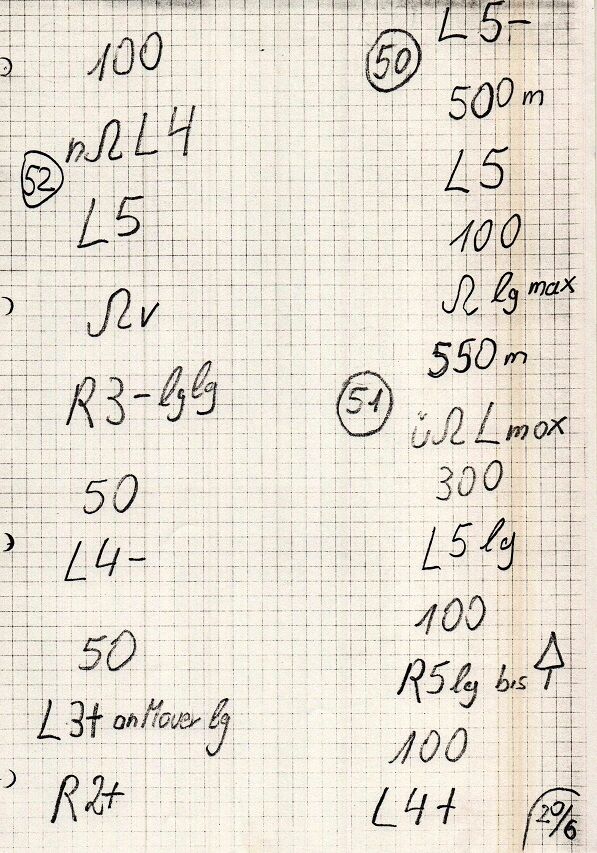 100
nΩ L4
52
L5
Ωv
R3- lglg
50
L4-
50
L3+ an Mauer lg
R2+
L5-
50
500 m
L5
100
Ω lg max
550 m
51
üΩ L max
300
L5 lg
100
R5 lg bis
100
L4+
20/6